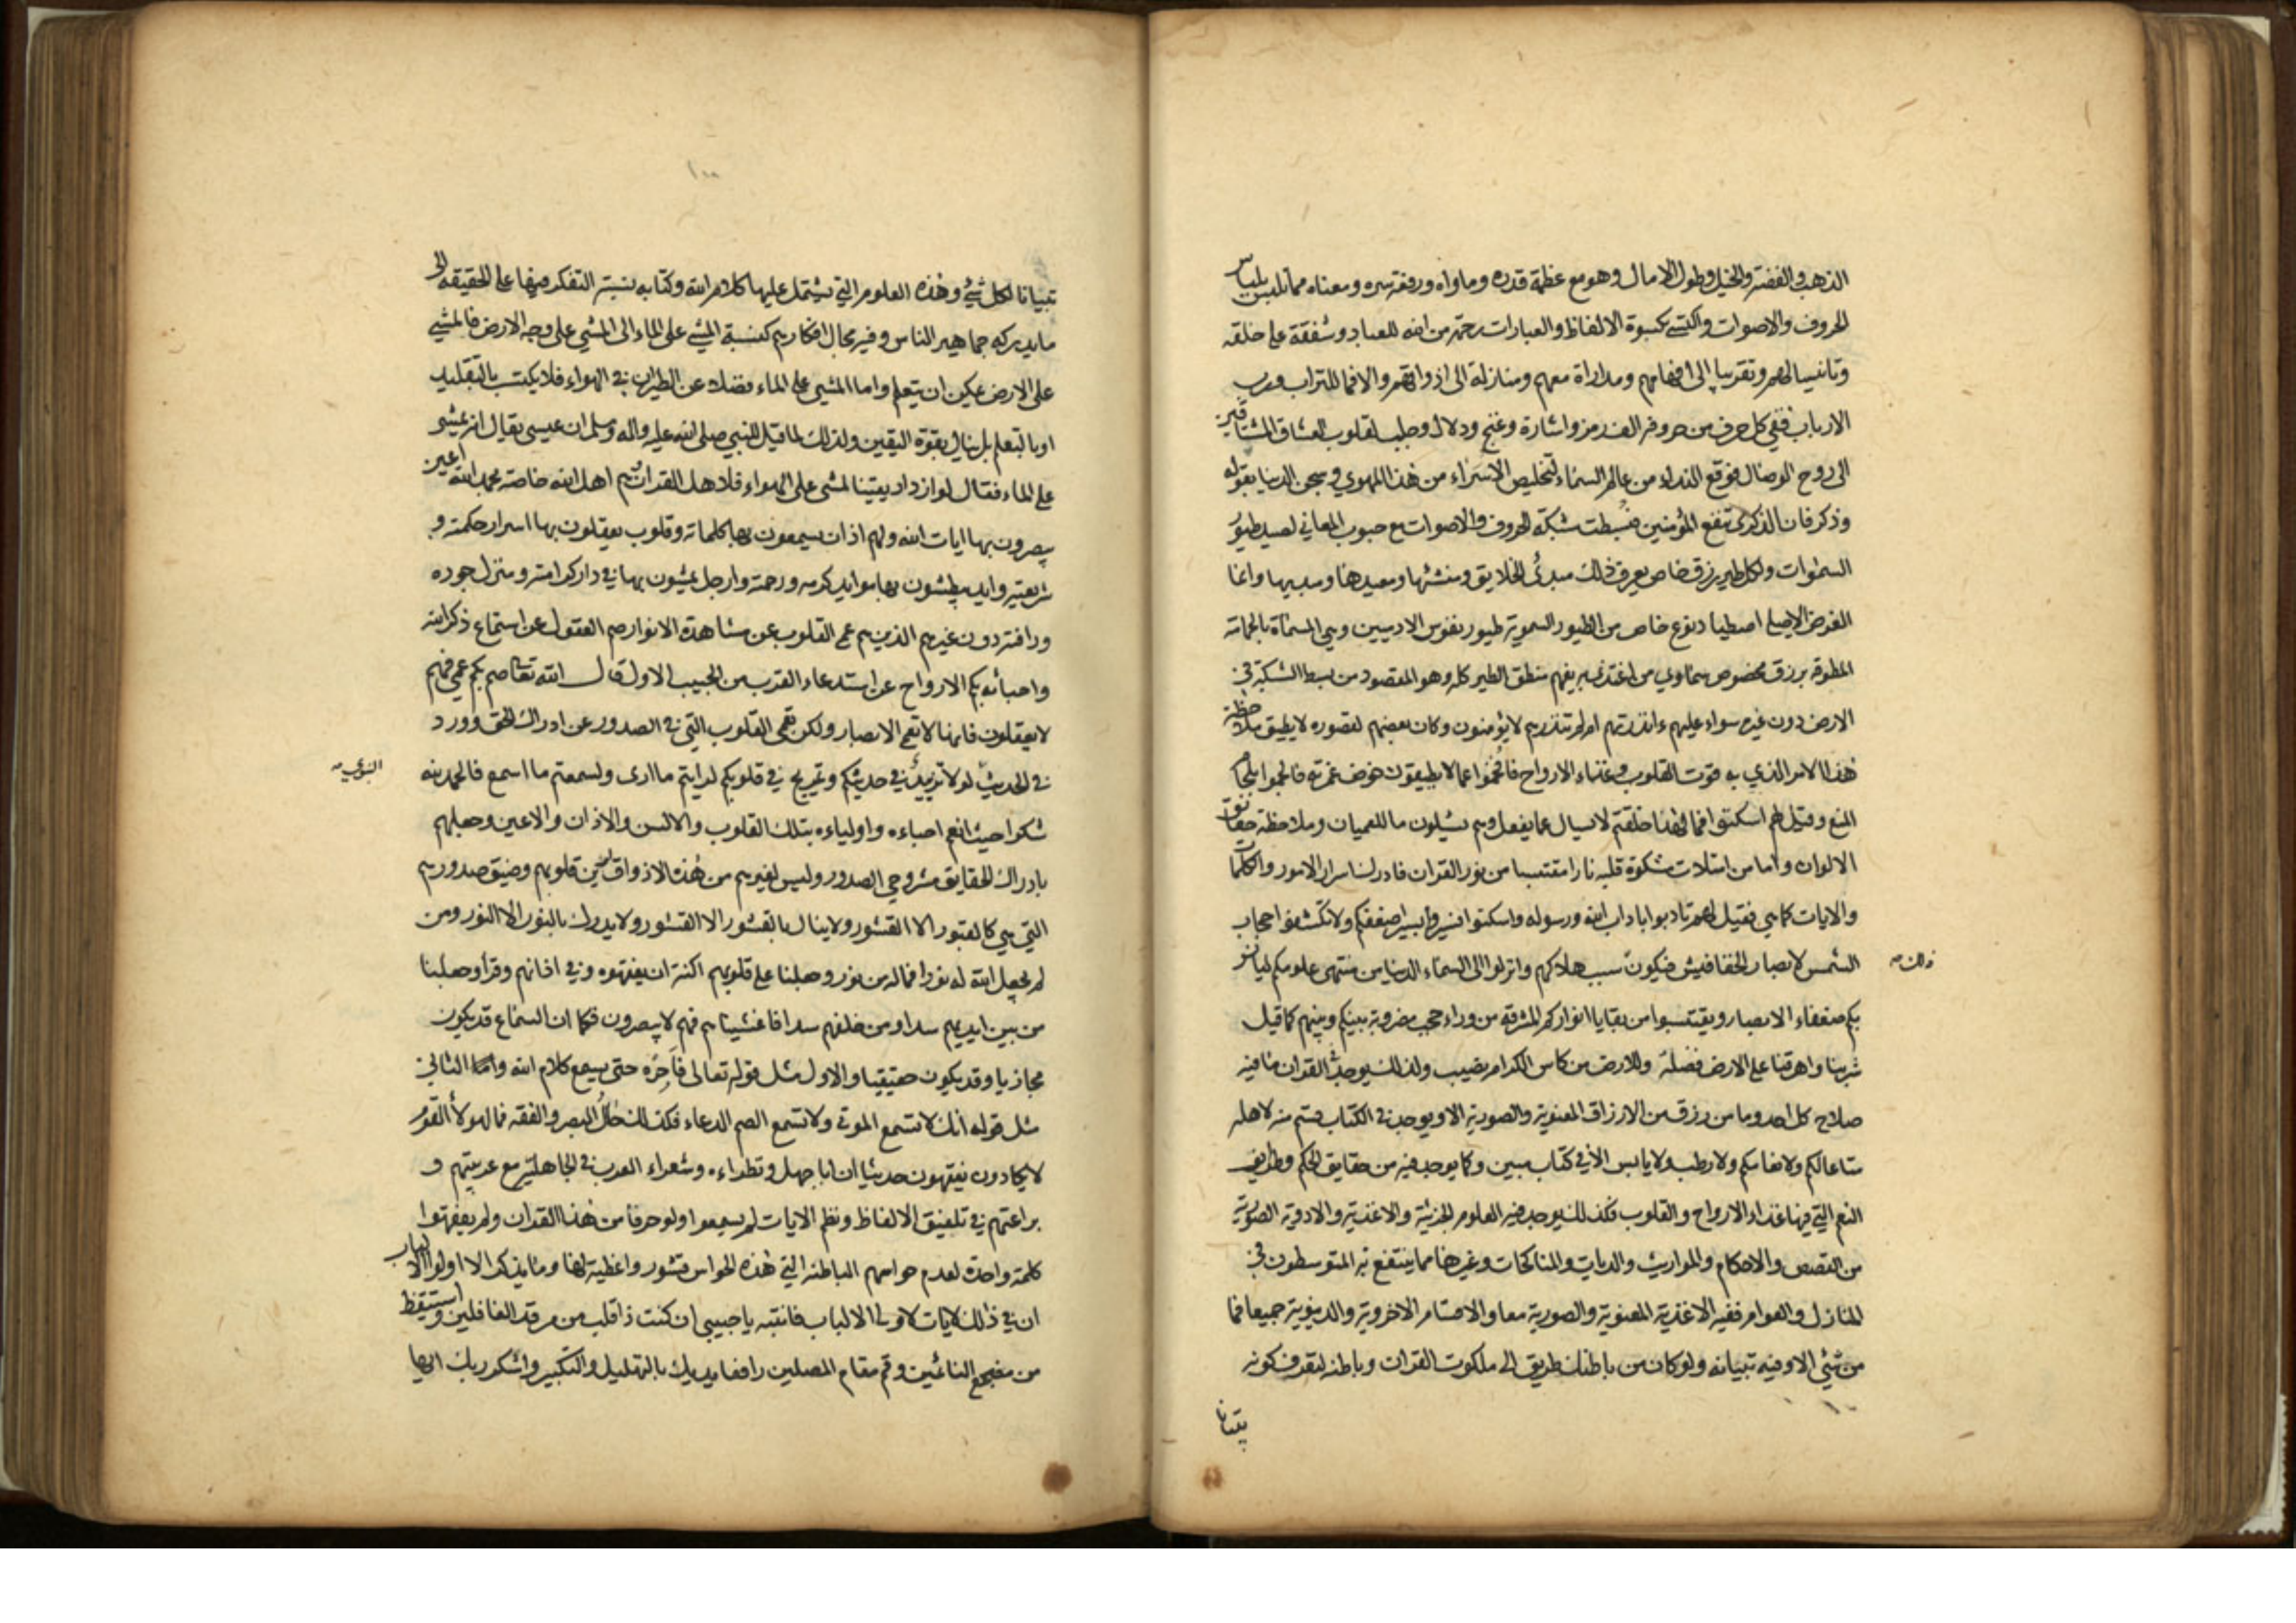 الذهب والفضة والخيل وطول الامال وهو مع عظمة قدره وماواه ورفعة سره ومعناه مما تلبس بلباس
الحروف والاصوات واكتسى بكسوة الالفاظ والعبارات رحمة من الله للعباد وشفقة على خلقه
وتانيسا لهم وتقريبا الى افهامهم ومداراة معهم ومنازلة الى اذواقهم والا فما للتراب ورب
الارباب ففي كل حرف من حروفه الف رمز واشارة وغنج ودلال وجلب لقلوب العشاق المشتاقين
الى روح الوصال فوقع النداء من عالم السماء لتخليص الاسراء من هذا المهوى وسجن الدنيا بقوله
وذكر فان الذكرى تنفع المؤمنين فبسطت شبكة الحروف والاصوات مع حبوب المعاني لصيد طيور
السموات ولكل طير رزق خاص يعرف ذلك مبدئ الخلايق ومنشئها ومعيدها ومبديها وانما
الغرض الاصلي اصطياد نوع خاص من الطيور السموية طيور نفوس الادميين وهي المسماة بالحمامة
المطوقة برزق مخصوص سماوي من اغتذى به يفهم منطق الطير كله وهو المقصود من بسط الشبكة في
الارض دون غيره سواء عليهم ءانذرتهم ام لم تنذرهم لا يؤمنون وكان بعضهم لقصوره لا يطيق ملاحظة
هذا الامر الذي به قوت القلوب وغذاء الارواح فالجموا عما لا يطيقون خوض غمرته فالجموا بلجام
المنع وقيل لهم اسكتوا فما لهذا خلقتم لا يسال عما يفعل وهم يسئلون ما للعميان وملاحظة حقائق
الالوان واما من امتلات مشكوة قلبه نارا مقتبسا من نور القران فادرك اسرار الامور والكلمات
والايات كما هي فقيل لهم تادبوا باداب الله ورسوله واسكتوا فسيروا بسير اضعفكم ولا تكشفوا حجاب
الشمس لابصار الخفافيش فيكون سبب هلاكهم وانزلوا الى السماء الدنيا من منتهى علومكم ليانس
ذلك صح
بكم ضعفاء الابصار ويقتبسوا من بقايا انواركم المشرقة من وراء حجب مضروبة بينكم وبينهم كما قيل
شربنا واهرقنا على الارض فضلة وللارض من كاس الكرام نصيب ولذلك يوجد في القران ما فيه
صلاح كل احد وما من رزق من الارزاق المعنوية والصورية الا ويوجد في الكتاب قسم منه لاهله
متاعا لكم ولانعامكم ولا رطب ولا يابس الا في كتاب مبين وكما يوجد فيه من حقايق الحكم وطرايف
النعم التي فيها غذاء الارواح والقلوب فكذلك يوجد فيه العلوم الجزئية والاغذية والادوية الصورية
من القصص والاحكام والمواريث والديات والمناكحات وغيرها مما ينتفع به المتوسطون في
المنازل والعوام ففيه الاغذية المعنوية والصورية معا والاقسام الاخروية والدنيوية جميعا فما
من شئ الا وفيه تبيانه ولو كان من باطنك طريق الى ملكوت القران وباطنه لتعرف كونه
تبيانا
١٠٠
تبيانا لكل شئ وهذه العلوم التي يشتمل عليها كلام الله وكتابه نسبة التفكر فيها على الحقيقة الى
ما يدركه جماهير الناس وفيه مجال افكارهم كنسبة المشي على الماء الى المشي على وجه الارض فالمشي
على الارض يمكن ان يتعلم واما المشي على الماء فضلا عن الطيران في الهواء فلا يكتسب بالتقليد
او بالتعلم بل ينال بقوة اليقين ولذلك لما قيل للنبي صلى الله عليه واله وسلم ان عيسى يقال انه يمشي
على الماء فقال لو ازداد يقينا لمشى على الهواء فلاهل القران هم اهل الله خاصة بحمد الله اعين
يبصرون بها ايات الله ولهم اذان يسمعون بها كلماته وقلوب يعقلون بها اسرار حكمته و
شريعته وايد يبطشون بها موايد كرمه ورحمته وارجل يمشون بها في دار كرامته ومنزل جوده
ورافته دون غيرهم الذين هم عمي القلوب عن مشاهدة الانوار صم العقول عن استماع ذكر الله
واحبائه بكم الارواح عن استدعاء القرب من الحبيب الاول قال الله تعالى صم بكم عمي فهم
لا يعقلون فانها لا تعمى الابصار ولكن تعمى القلوب التي في الصدور عن ادراك الحق وورد
في الحديث لولا تزييد في حديثكم وتمريج في قلوبكم لرايتم ما ارى ولسمعتم ما اسمع فالحمد لله
النبوي صح
شكرا حيث انعم احباءه واولياءه بتلك القلوب والالسن والاذان والاعين وجعلهم
بادراك الحقايق مشروحي الصدور وليس لغيرهم من هذه الاذواق قلوبهم وضيق صدورهم
التي هي كالقبور الا القشور ولا ينال بالقشور الا القشور ولا يدرك بالنور الا النور ومن
لم يجعل الله له نورا فما له من نور وجعلنا على قلوبهم اكنة ان يفقهوه وفي اذانهم وقرا وجعلنا
من بين ايديهم سدا ومن خلفهم سدا فاغشيناهم فهم لا يبصرون فكما ان السماع قد يكون
مجازيا وقد يكون حقيقيا والاول مثل قوله تعالى فأجره حتى يسمع كلام الله واما الثاني
مثل قوله انك لا تسمع الموتى ولا تسمع الصم الدعاء فكذلك حال البصر والفقه فما لهولاء القوم
لا يكادون يفقهون حديثا ان ابا جهل ونظراءه وشعراء العرب في الجاهلية مع عربيتهم و
براعتهم في تلفيق الالفاظ ونظم الايات لم يسمعوا ولو حرفا من هذا القران ولم يفقهوا
كلمة واحدة لعدم حواسهم الباطنة التي هذه الحواس قشور واغطية لها وما يذكر الا اولوا الالباب
ان في ذلك لايات لاولي الالباب فانتبه يا حبيبي ان كنت ذا قلب من مرقد الغافلين واستيقظ
من مضجع النائمين وقم مقام المصلين رافعا يديك بالتهليل والتكبير واشكر ربك ايها